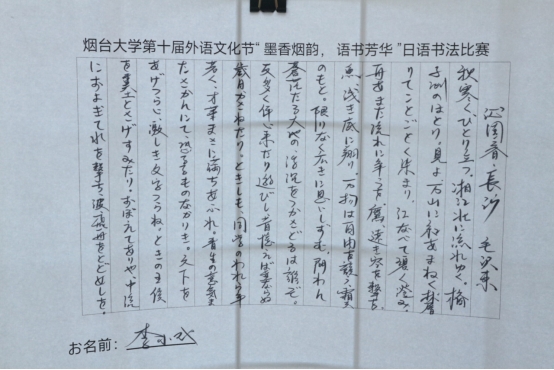 烟台大学第十届外语文化节“墨香烟韵，语书芳华”日语书法比赛
沁園春·長沙　毛沢東
秋寒くひとり立つ。湘江北に流れゆく。橘
子洲のほとり。見よ万山に紅あまねく、林層
りてことごとく染まり、江なべて碧く澄み、
再あまた流れに争う。鷹速き空を撃ち、
魚浅き底に翔り、万物は自由を競う、霜天
のもと。限りなく広きに思いしずむ。問わん
蒼茫たる大地の、浮沈をつかさどるは誰ぞ。
友多く伴い来たり遊びし、昔憶えば
歳月かさねたり。ときしも、同学のわれら年
若く、才華まさに満ちあふれ、書生の意気ま
たさかんにて、恐るるものなかりき。天下を
あげつらい、激しき文字つらね、ときの王侯
を糞土とさげすみたり。おぼえてありや、中流
におよぎて水を撃ち、波、飛舟をとどめしを。
お名前：李